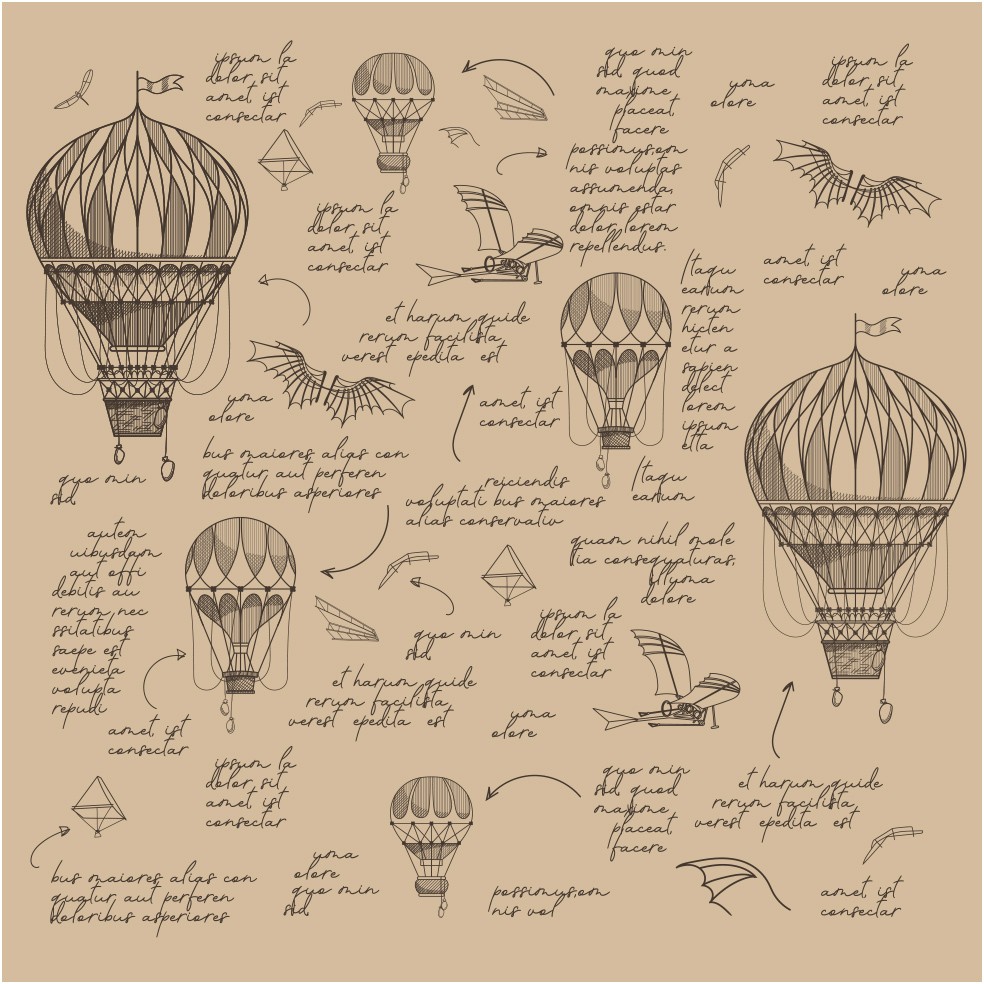 ipsum la
dolor sit
amet ist
consectar
quo min
sid quod
maxime
placeat
facere
possimus,om
nis voluptas
assumenda,
omnis estar
dolor lorem
repellendus.
uma
olore
ipsum la
dolor sit
amet ist
consectar
ipsum la
dolor sit
amet ist
consectar
Itaqu
earum
rerum
hicten
etur a
sapien
delect
lorem
ipsum
etta
amet ist
consectar
uma
olore
et harum quide
rerum facilista
verest epedita est
uma
olore
amet ist
consectar
bus maiores alias con
quatur aut perferen
doloribus asperiores
quo min
sid
reiciendis
voluptati bus maiores
alias conservativ
Itaqu
earum
autem
uibusdam
aut offi
debitis au
rerum nec
ssitatibus
saepe est
evenieta
volupta
repudi
quam nihil mole
tia consequaturas,
Illyma
dolore
ipsum la
dolor sit
amet ist
consectar
quo min
sid
et harum quide
rerum facilista
verest epedita est
uma
olore
amet ist
consectar
ipsum la
dolor sit
amet ist
consectar
quo min
sid quod
maxime
placeat
facere
et harum quide
rerum facilista
verest epedita est
bus maiores alias con
quatur aut perferen
doloribus asperiores
uma
olore
quo min
sid
possimus,om
nis vol
amet ist
consectar